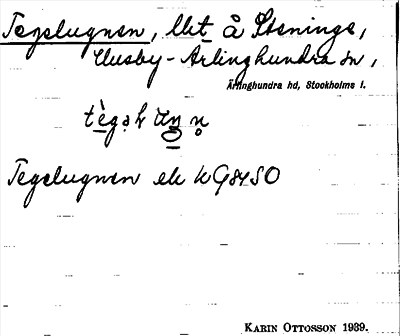 Tegelugnen, llet å Steninge,
Husby-Ärlinghundra sn,
Ärlinghundra hd, Stockholms l.
Tegelugnen ek kG84SO
KARIN OTTOSSON 1939.